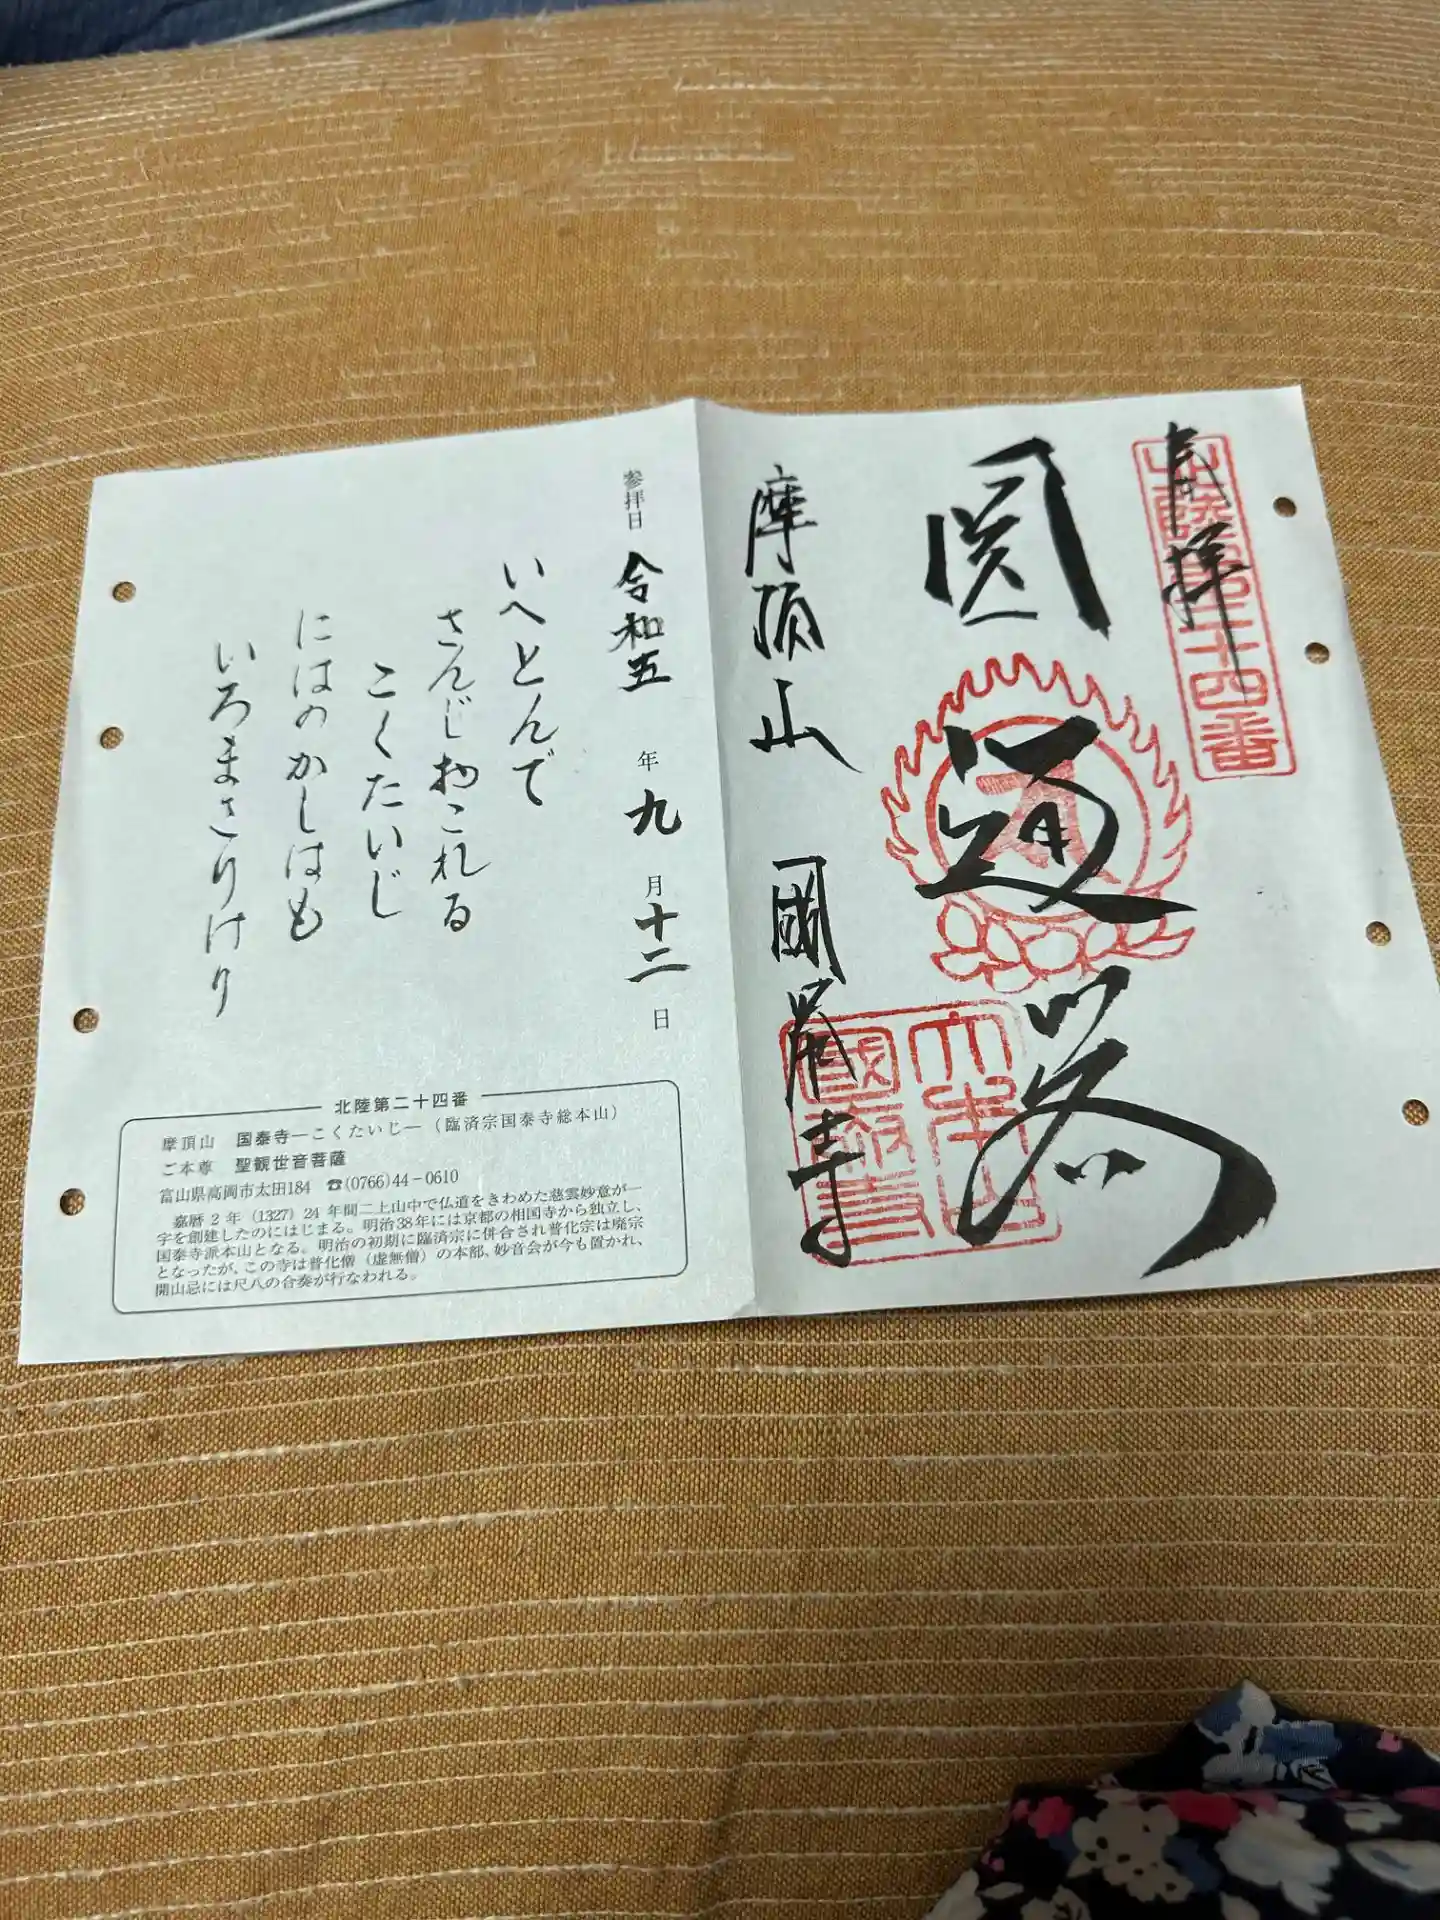 奉拝
北陸第二十四番
圓通
摩頂山 國泰寺
大本山
國泰寺
参拝日 令和五年九月十二日
いへとんで
さんじおこれる
こくたいじ
にはのかしはも
いろまさりけり
北陸第二十四番
摩頂山 国泰寺―こくたいじ―(臨済宗国泰寺総本山)
ご本尊 聖観世音菩薩
富山県高岡市太田184 ☎(0766)44−0610
嘉暦2年(1327)24年間二上山中で仏道をきわめた慈雲妙意が一
宇を創建したのにはじまる。明治38年には京都の相国寺から独立し、
国泰寺派本山となる。明治の初期に臨済宗に併合され普化宗は廃宗
となったが、この寺は普化僧(虚無僧)の本部、妙音会が今も置かれ、
開山忌には尺八の合奏が行なわれる。